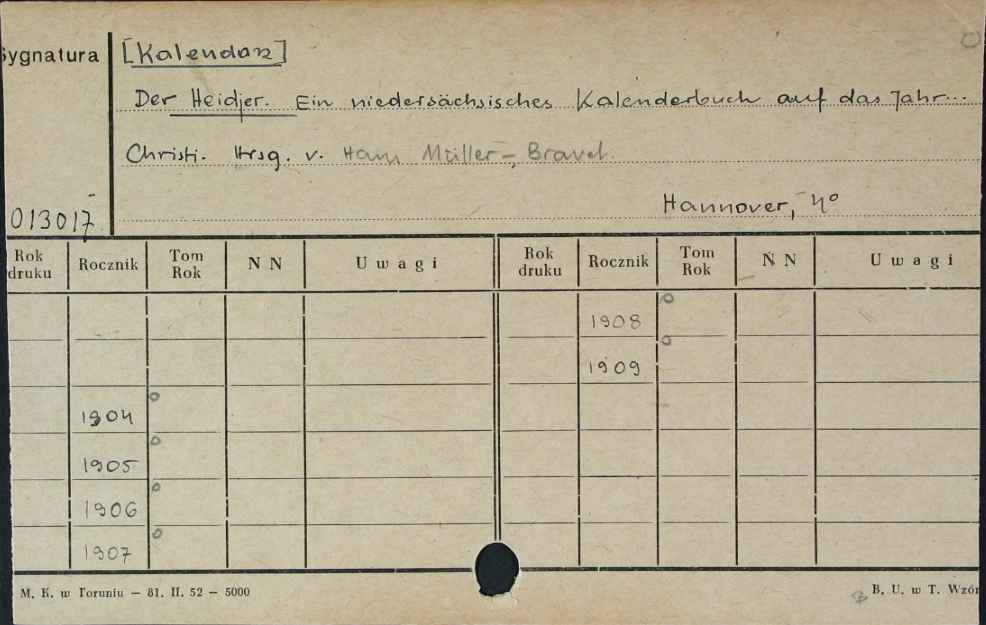 Sygnatura [Kalendarz]
Der Heidjer. Ein niedersächsisches Kalenderbuch auf das Jahr...
Christi. Hrsg. v. Hans Müller-Bravel.
013017 Hannover, 4°
Rok druku Rocznik Tom Rok N N Uwagi Rok druku Rocznik Tom Rok N N Uwagi
1908
1909
1904
1905
1906
1907
M. K. w Toruniu — 81. II. 52 — 5000 B. U. w T. Wzór